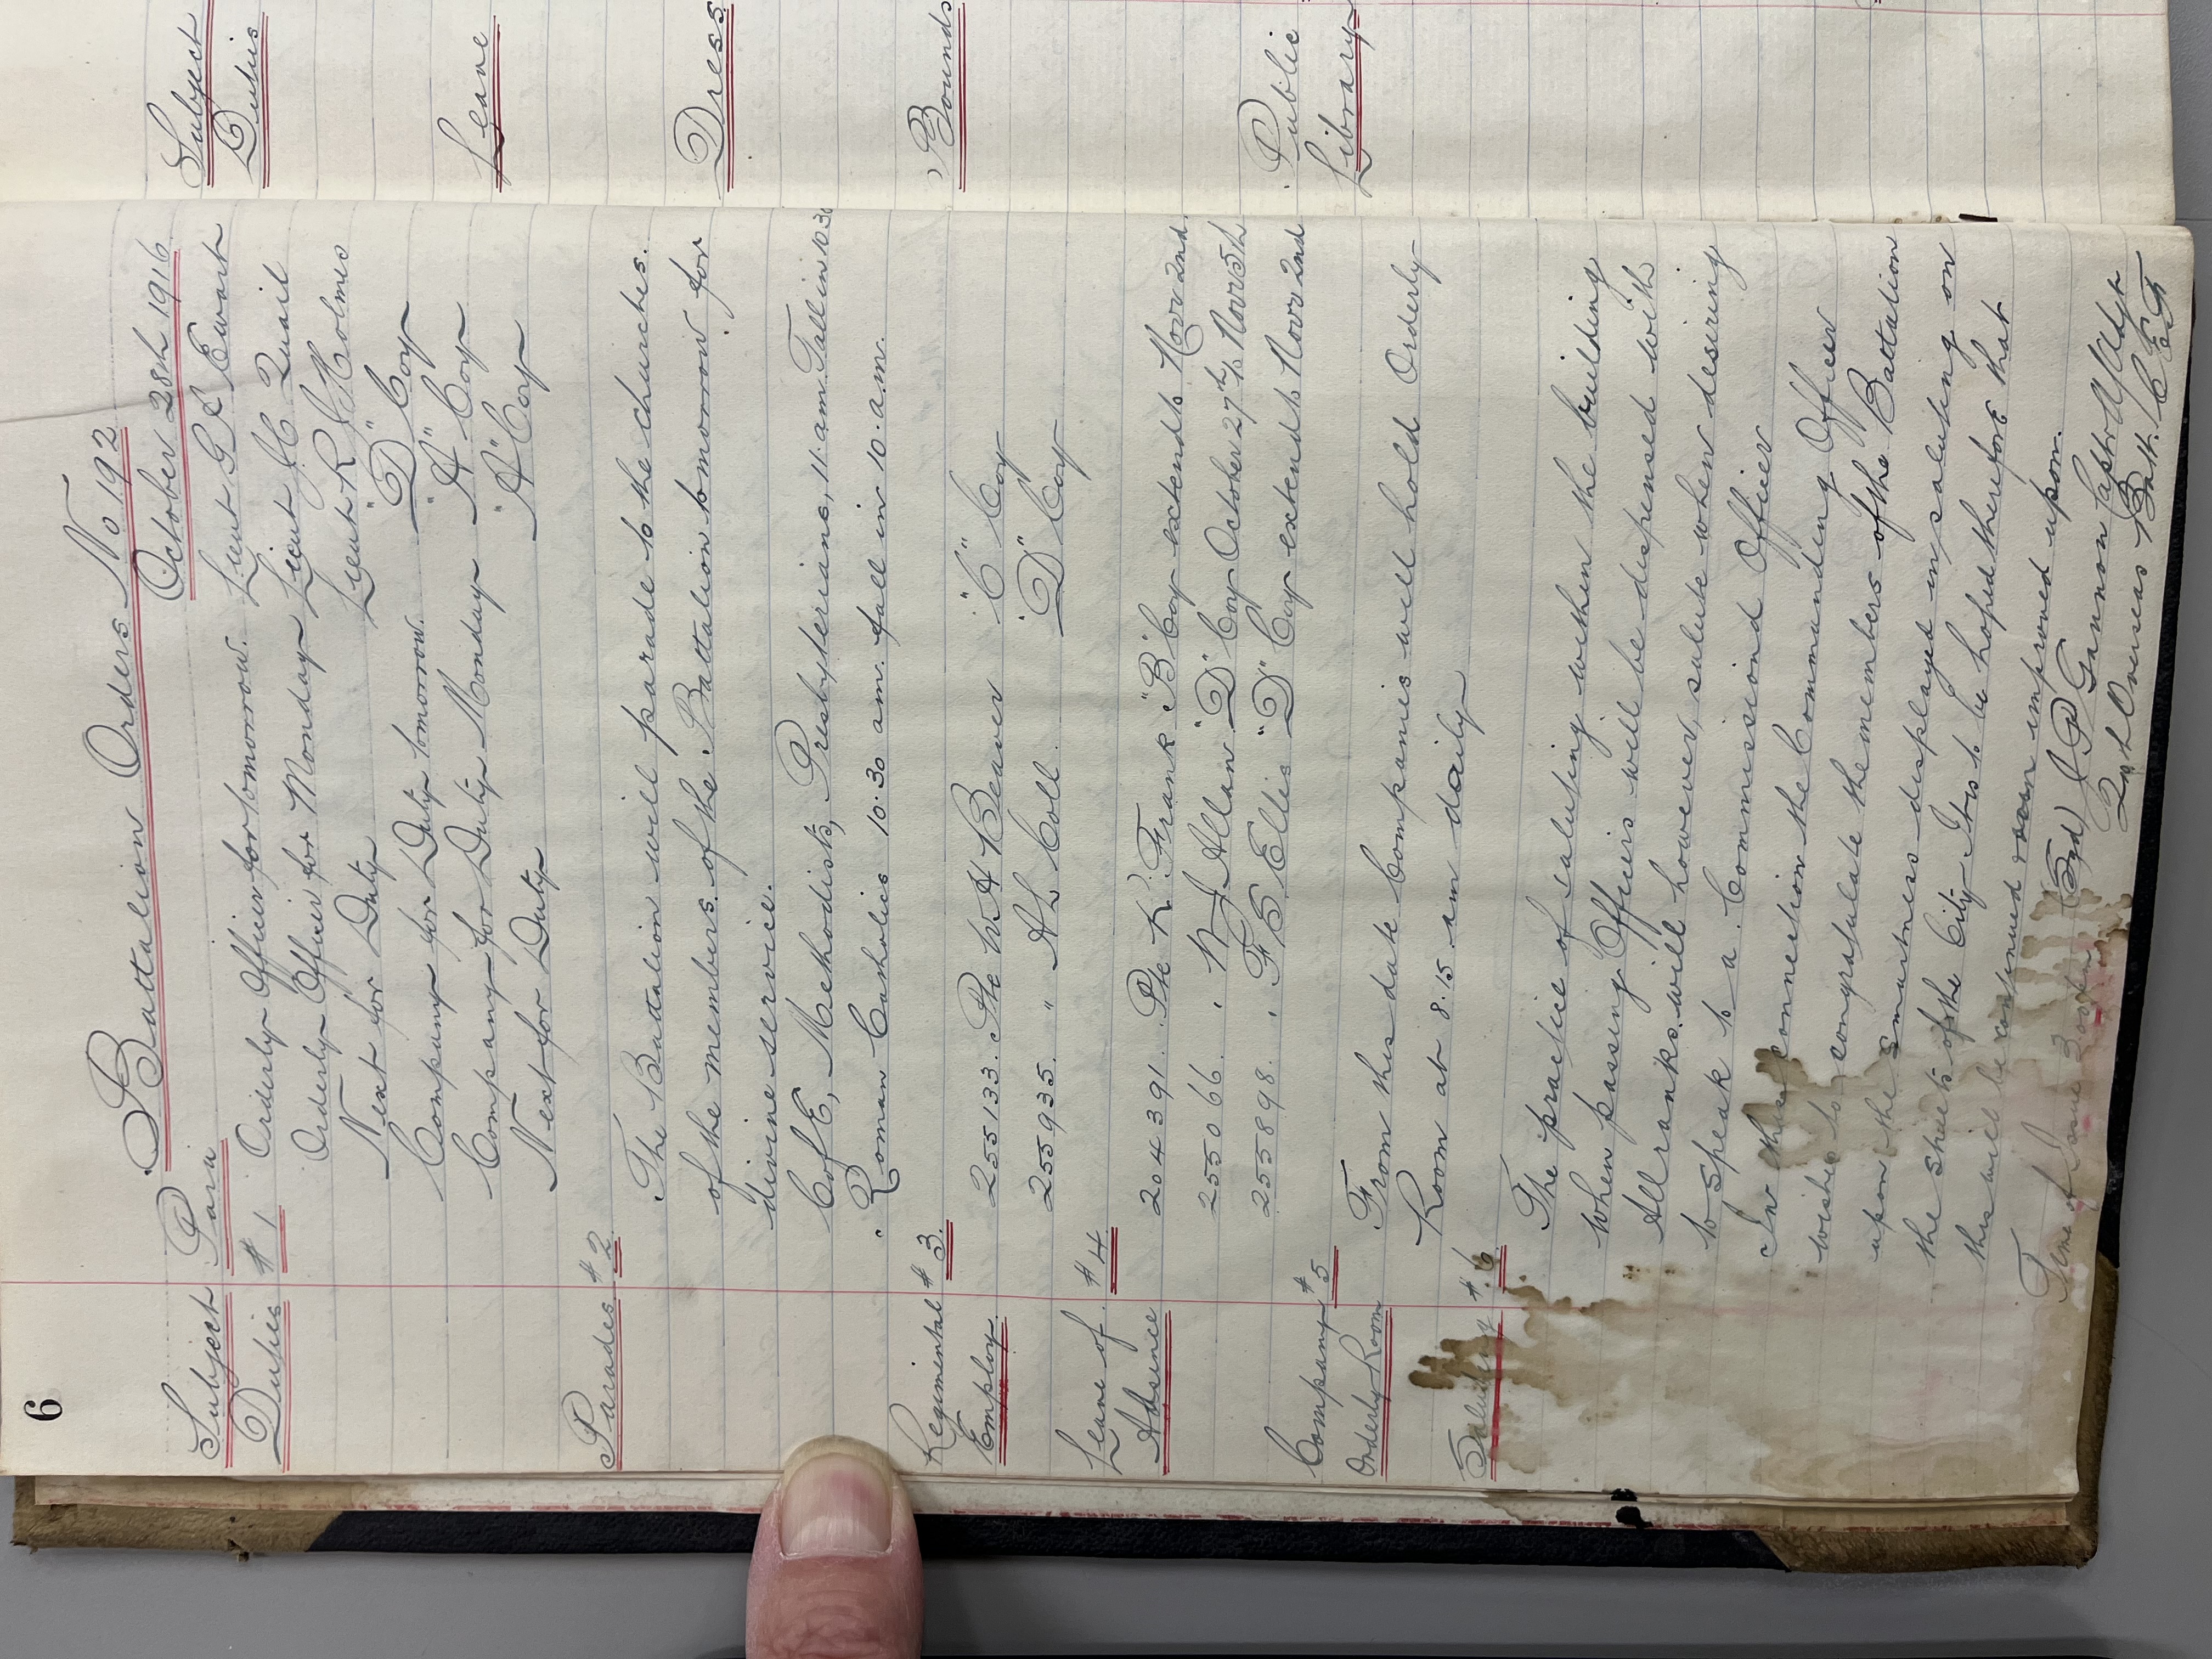 6
Battalion Orders No 192
October 28th 1916
Subject Para
Duties # 1 Orderly Officer for tomorrow. Lieut G S Ewart
Orderly Officer for Monday Lieut J C Quail
Next for Duty Lieut R J Holmes
Company for Duty tomorrow. "D" Coy
Company for Duty Monday "A" Coy
Next for Duty "A" Coy
Parades # 2
The Battalion will parade to the churches.
of the members of the Battalion tomorrow for
divine service.
C of E, Methodists, Presbyterians, 11. am Fall in 10 30
Roman Catholics 10.30 am. fall in 10. a.m.
Regimental # 3
Employ 255133. Pte W A Beaver "C" Coy
255935. " A L Coll "D" Coy
Leave of # 4
Absence 204391. Pte K. Frank "B" Coy extends Novr 2nd
255066. " N J Allan "D" Coy October 27th to Novr 5th
255898. " F C Ellis "D" Coy extends Novr 2nd
Company # 5
Orderly Room
From this date Companies will hold Orderly
Room at 8.15 am daily
Saluting # 6
The practice of saluting within the building
when passing Officers will be dispensed with
All ranks will however, salute when desiring
to speak to a Commissioned Officer
In this connection the Commanding Officer
wishes to congratulate the members of the Battalion
upon the smartness displayed in saluting on
the streets of the City. It is to be hoped therefore that
this will be continued improved upon.
Time of Issue 3.00 pm (Sgd) J P Gannon Capt & A/Adjt
Overseas Batt. C E F
Subject
Duties
Leave
Dress
Bounds
Public
Library